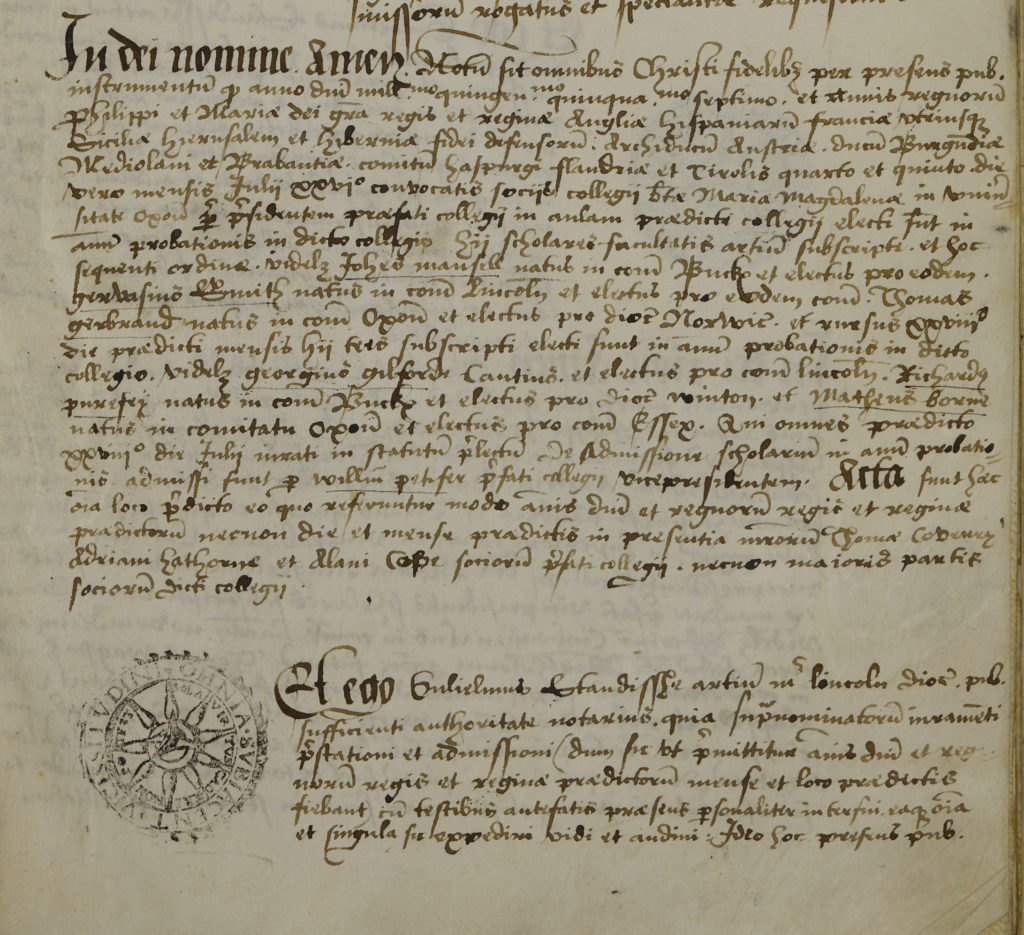 rogatus et specialiter requisitus.
In dei nomine Amen. Notũ sit omnibus Christi fidelibȝ per presens pub.
instrumentũ qď anno dñi mill.mo quingen.mo quinqua.mo septimo. et annis regnorũ
Philippi et Mariæ dei grã regis et reginæ Angliæ hispaniarũ franciæ utriusqȝ
Siciliæ hierusalem et hiberniæ fidei defensorũ. Archiducũ Austriæ. ducũ Burgũdiæ
Mediolani et Brabantiæ. comitũ haspurgi flandriæ et Tirolis quarto et quinto. die
vero mensis Julii xxvi° convocatis sociis collegii btæ Mariæ Magdalenæ in univer=
sitate Oxoñ p̄ p̄sidentem præfati collegii in aulam prædicti collegii electi sũt in
annũ probationis in dicto collegio hii scholares facultatis artiũ subscripti. et hoc
sequenti ordine. videlȝ Johẽs mansell natus in com̃ Buck et electus pro eodem.
gervasius Smith natus in com̃ Lincoln et electus pro eodem com̃. Thomas
gerbrand natus in com̃ Oxoñ et electus pro dioc̃ Norwic̃. et rursus xxviii°
die prædicti mensis hii tres subscripti electi sunt in annũ probationis in dicto
collegio. videlȝ georgius gilforde Cantius. et electus pro com̃ lincoln. Richardȝ
purefey natus in com̃ Buck et electus pro dioc̃ winton. et Matheus borne
natus in comitatu Oxoñ et electus pro com̃ Essex. Qui omnes prædicto
xxviii° die Julii iurati in statutũ p̄lectũ De Admissione scholariũ in annũ probatio=
nis. admissi sunt p̄ willm̃ petifer p̄fati collegii vicepresidentem. Acta sunt hæc
oĩa loco p̄dicto eo quo referuntur modo annis dñi et regnorũ regis et reginæ
prædictorũ necnon die et mense prædictis in presentia mrorũ Thomæ Coveney
Adriani hathorne et Alani Cope sociorũ p̄fati collegii. necnon maioris partis
sociorũ dicti collegii.
Et ego Gulielmus Standisshe artiũ mr̃ lincoln dioc̃. pub.
sufficienti authoritate notarius. quia sup̃nominatorũ iuramẽti
p̄stationi et admissioni (dum sic ut p̄mittitur annis dñi et reg=
norũ regis et reginæ prædictorũ mense et loco prædictis
fiebant) cũ testibus antefatis præsens p̄sonaliter interfui. eaqȝ oĩa
et singula sic expediri vidi et audivi. Ideo hoc presens pub.
OMNIA SUBIICIUNTUR VICISSITUDINI